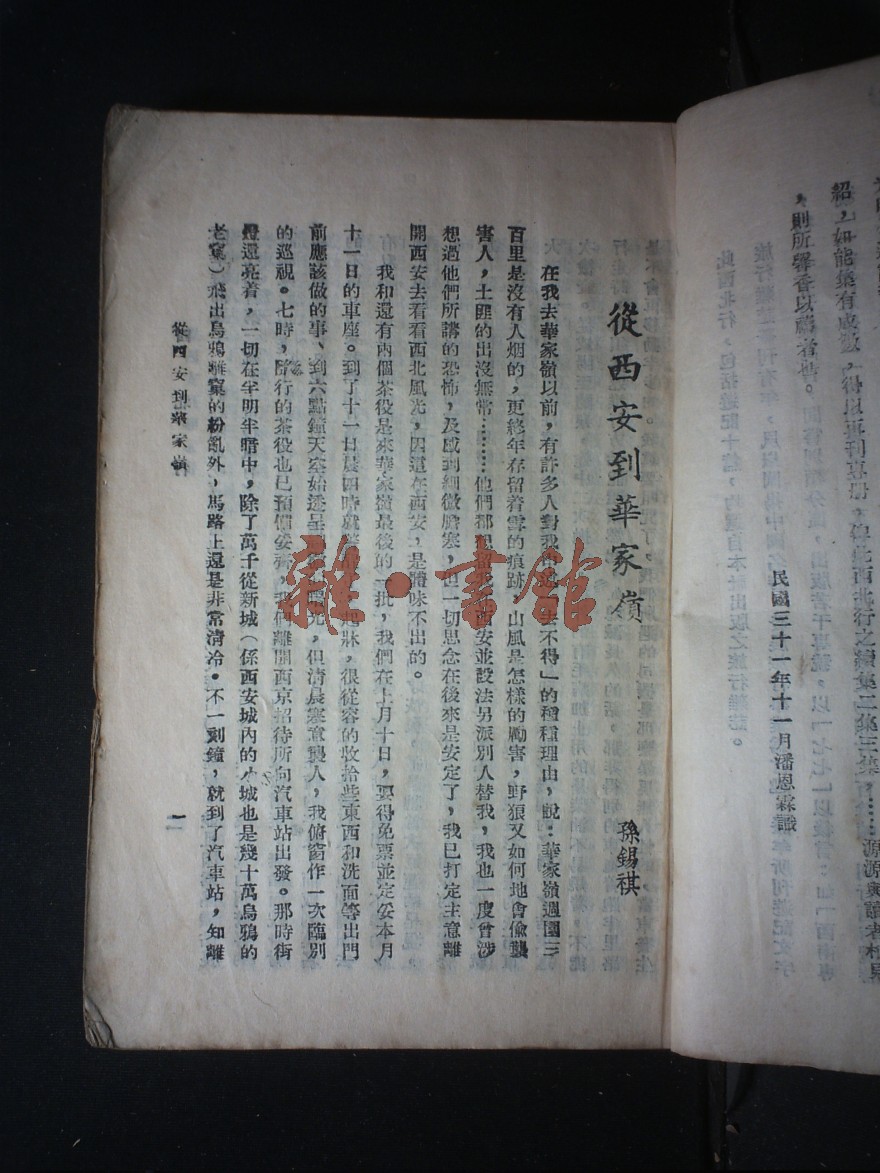 紹，如能集有成數，得以再刊專册，俾此西北行之續集二集三集，……源源與讀者相見
，則所馨香以禱者也。
民國三十一年十一月潘恩霖識
從西安到華家嶺
孫錫祺
在我去華家嶺以前，有許多人對我說過「去不得」的種種理由，說：華家嶺週圍三
百里是沒有人烟的，更終年存留着雪的痕跡，山風是怎樣的勵害，野狼又如何地會偷襲
害人，土匪的出沒無常………他們都想留我在西安並設法另派別人替我，我也一度曾涉
想過他們所講的恐怖，及感到細微膽寒，但一切思念在後來是安定了，我已打定主意離
開西安去看看西北風光，因這在西安，是體味不出的。
我和還有兩個茶役是來華家嶺最後的一批，我們在上月十日，要得免票並定妥本月
十一日的車座。到了十一日晨四時就 起牀，很從容的收拾些東西和洗面等出門
前應該做的事、到六點鐘天空始透呈 曙光，但清晨寒意襲人，我俯窗作一次臨別
的巡視。七時，隨行的茶役也已預備妥齊，我們離開西京招待所向汽車站出發。那時街
燈還亮着，一切在半明半暗中，除了萬千從新城（係西安城內的小城也是幾十萬烏鴉的
老窠）飛出烏鴉離窠的紛亂外，馬路上還是非常清冷。不一刻鐘，就到了汽車站，知離
從西安到華家嶺
一
雜·書館